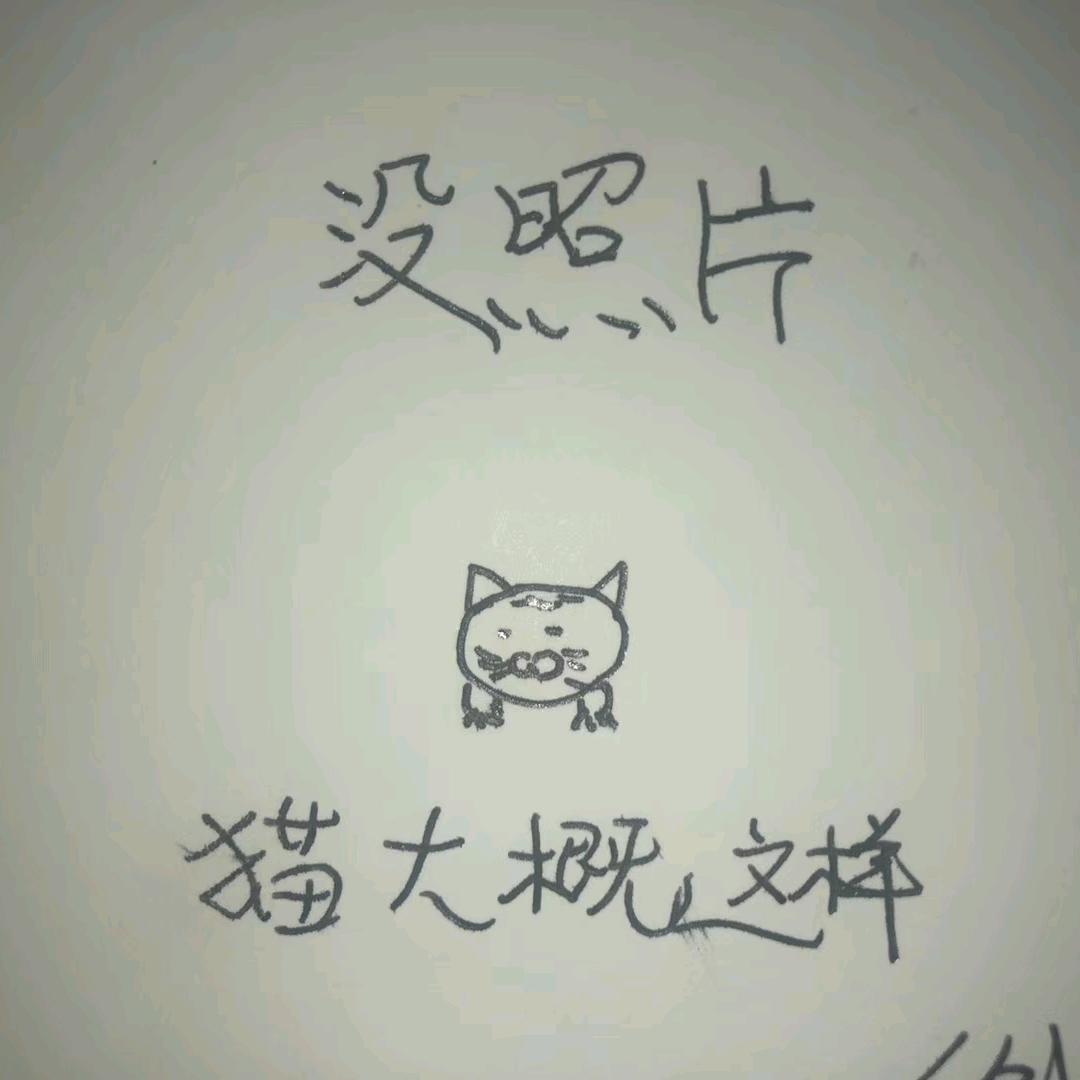 没照片
猫大概这样